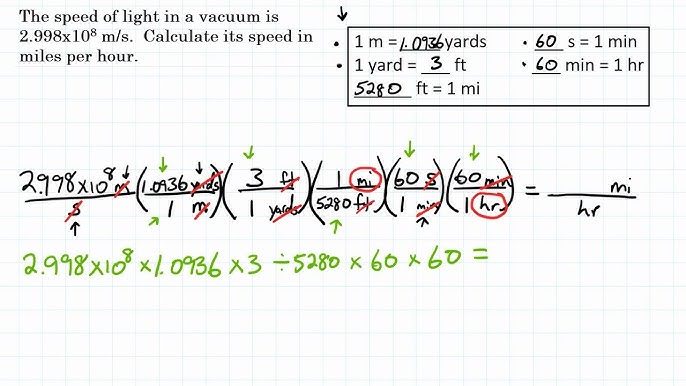 The speed of light in a vacuum is
2.998x10⁸ m/s. Calculate its speed in
miles per hour.
• 1 m = 1.0936 yards • 60 s = 1 min
• 1 yard = 3 ft • 60 min = 1 hr
5280 ft = 1 mi
2.998×10⁸ m/s (1.0936 yards/1 m)(3 ft/1 yards)(1 mi/5280 ft)(60 s/1 min)(60 min/1 hr) = ___ mi/hr
2.998×10⁸ × 1.0936 × 3 ÷ 5280 × 60 × 60 =